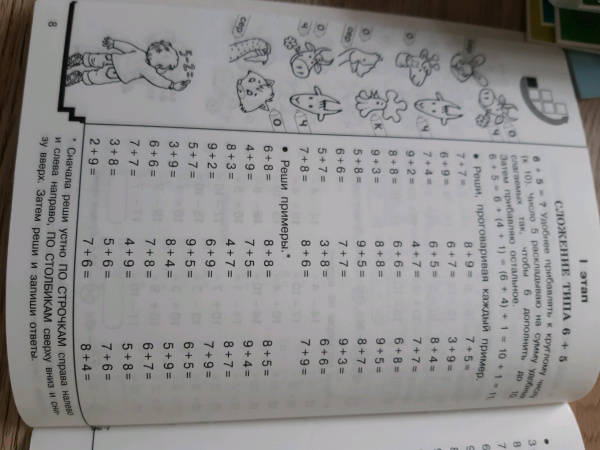 I этап
СЛОЖЕНИЕ ТИПА 6 + 5
6 + 5 = ? Удобнее прибавлять к круглому числу
(к 10). Число 5 раскладываю на сумму удобных
слагаемых так, чтобы 6 дополнить до 10.
Затем прибавляю остальное.
6 + 5 = 6 + (4 + 1) = (6 + 4) + 1 = 10 + 1 = 11
• Реши, проговаривая каждый пример.
7 + 7 = 8 + 9 = 7 + 5 =
6 + 9 = 6 + 7 = 3 + 9 =
7 + 4 = 6 + 5 = 8 + 4 =
9 + 2 = 4 + 7 = 7 + 7 =
8 + 8 = 6 + 6 = 6 + 8 =
9 + 3 = 8 + 4 = 9 + 5 =
5 + 8 = 9 + 5 = 8 + 7 =
6 + 6 = 7 + 7 = 9 + 3 =
5 + 7 = 8 + 6 = 6 + 6 =
7 + 8 = 3 + 8 = 7 + 9 =
• Реши примеры.*
6 + 8 = 8 + 8 = 8 + 5 =
4 + 9 = 7 + 5 = 9 + 4 =
8 + 3 = 4 + 7 = 8 + 7 =
9 + 2 = 6 + 9 = 7 + 9 =
5 + 7 = 9 + 5 = 6 + 5 =
3 + 9 = 8 + 4 = 5 + 9 =
6 + 6 = 7 + 8 = 6 + 7 =
7 + 7 = 4 + 9 = 5 + 8 =
3 + 8 = 5 + 6 = 7 + 6 =
2 + 9 = 7 + 6 = 8 + 4 =
* Сначала реши устно ПО СТРОЧКАМ справа налево
и слева направо, ПО СТОЛБИКАМ сверху вниз и сни-
зу вверх. Затем реши и запиши ответы.
5-2=
8